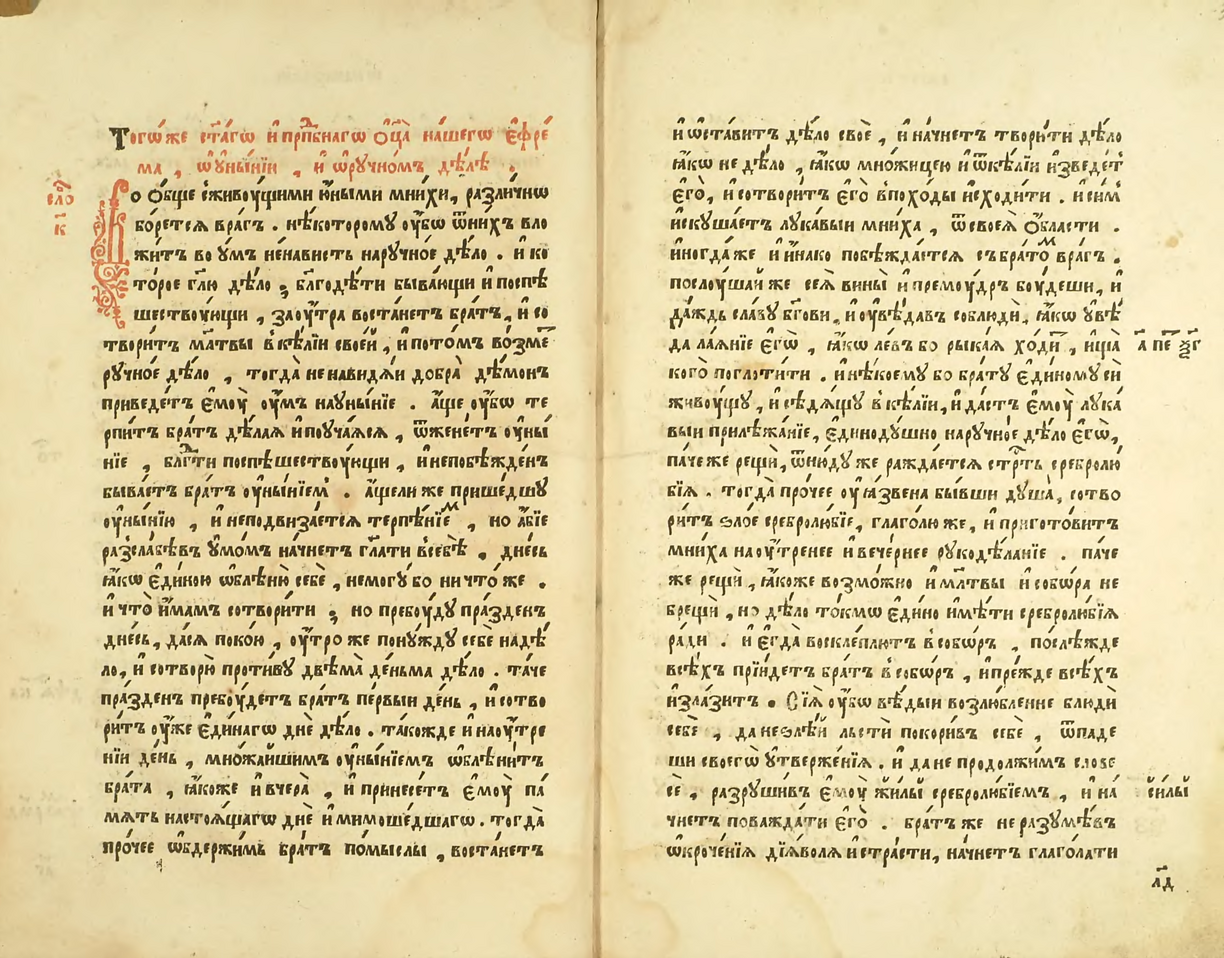 Тогѡ́же ст҃а́гѡ и҆ прпⷣбнагѡ ѻ҆ц҃а̀ на́шегѡ є҆фре́
ма , ѡ҆ ᲂу҆ны́нїи , и҆ ѡ҆ рꙋ́чномъ дѣ́лѣ .
сло́
к҃
Ко ѻ҆́бще сживоꙋ́щими ю҆́ными мни́хи, разли́чнѡ
бо́ретсѧ вра́гъ . нѣ́которомꙋ ᲂу҆́бѡ ѿ ни́хъ вло
жи́тъ во ᲂу҆́мъ не́нависть на рꙋ́чно́е дѣ́ло . и҆ ко
то́рое гл҃ю дѣ́ло ; бл҃года́ти быва́ющи и҆ поспѣ
шествоꙋ́ющи , заꙋ́тра воста́нетъ бра́тъ, и҆ со
твори́тъ мл҃твы в кѣ́лїи свое́й , и҆ пото́мъ во́зме
рꙋ́чное дѣ́ло , тогда̀ ненави́дѧи добра̀ де́монъ
приведе́тъ є҆моꙋ̀ ᲂу҆́мъ на ᲂу҆ны́нїе . а҆́ще ᲂу҆́бѡ те
рпи́тъ бра́тъ дѣ́лаѧ и҆ поꙋча́ѧсѧ , ѿжене́тъ ᲂу҆ны́
нїе , бл҃гⷣти поспѣшествоꙋ́ющи , и҆ непобѣжде́нъ
быва́етъ бра́тъ ᲂу҆ны́нїемъ . а҆́щели же прише́дшꙋ
ᲂу҆ны́нїю , и҆ неподви́заетсѧ терпѣ́нїеⷨ , но а҆́бїе
разслабѣ́въ ᲂу҆мо́мъ на́чнетъ гл҃ати в себѣ̀ , дне́сь
ꙗ҆́кѡ є҆ди́ною ѡ҆блѣню̀ себѐ , немогꙋ́ бо ничто́ же .
и҆ что̀ и҆́мамъ сотвори́ти ; но пребоꙋ́дꙋ пра́зденъ
дне́сь, да сѧ поко́ю , ᲂу҆́тро же понꙋ́ждꙋ себѐ на дѣ́
ло, и҆ сотворю̀ проти́вꙋ двѣма̀ де́ньма дѣ́ло . та́че
пра́зденъ пребоꙋ́детъ бра́тъ пе́рвыи де́нь , и҆ сотво
ри́тъ ᲂу҆́же є҆ди́нагѡ днѐ дѣ́ло . та́кожде и҆ наꙋ́тре
нїи де́нь , мно́жаишимъ ᲂу҆ны́нїемъ ѡ҆блѣни́тъ
бра́та , ꙗ҆́коже и҆ вчера̀ , и҆ принесе́тъ є҆моꙋ̀ па́
мѧть настоѧ́щагѡ днѐ и҆ мимоше́дшагѡ . тогда̀
про́чее ѡ҆бдержи́мь бра́тъ по́мыслы , воста́нетъ
и҆ ѡ҆ста́витъ дѣ́ло своѐ , и҆ на́чнетъ твори́ти дѣ́ло
ꙗ҆́кѡ не дѣ́ло , ꙗ҆́кѡ мно́жицею и҆ ѿ кѣ́лїи и҆зведе́т
є҆го̀, и҆ сотвори́тъ є҆го̀ в похо́ды и҆сходи́ти . и҆ си́м
и҆скꙋша́етъ лꙋка́выи мни́ха , ѿ своеѧ̀ ѻ҆́бласти .
и҆ногда́ же и҆ и҆́нако побѣжда́етсѧ съ бра́тоⷨ вра́гъ .
послоꙋ́шай же сеѧ̀ вины̀ и҆ премоꙋ́дръ боꙋ́деши, и҆
да́ждь сла́вꙋ бг҃ови, и҆ ᲂу҆вѣ́давъ соблюдѝ, ꙗ҆́кѡ ᲂу҆вѣ́
да лаѧ́нїе є҆гѡ̀ , ꙗ҆́кѡ ле́въ бо рыка́ѧ хо́ди , и҆щѧ̀
а҃ пе ѯ҃г
кого̀ поглоти́ти . и҆ нѣ́коемꙋ бо бра́тꙋ є҆ди́номꙋ си
живоꙋ́щꙋ, и҆ сѣдѧ́щꙋ в кѣ́лїи, и҆ да́стъ є҆моꙋ̀ лꙋка́
выи прилѣжа́нїе, є҆динодꙋ́шно на рꙋ́чно́е дѣ́ло є҆гѡ̀,
па́че же рещѝ, ѿню́дꙋ же ражда́етсѧ стрⷭ҇ть сребролю́
бїѧ . тогда̀ про́чее ᲂу҆ꙗ҆́звена бы́вши дꙋша̀, сотво
ри́тъ ѕло́е сребролю́бїе, глаго́лю же, и҆ пригото́витъ
мни́ха на ᲂу҆́тренее и҆ вече́рнее рꙋкодѣ́ланїе . па́че
же рещѝ , ꙗ҆́коже возмо́жно и҆ мл҃твы и҆ собѡ́ра не
брещѝ , но дѣ́ло то́кмѡ є҆ди́но и҆мѣ́ти сребролю́бїѧ
ра́ди . и҆ є҆гда̀ воскле́плютъ в собѡ́ръ , послѣ́жде
всѣ́хъ прїи́детъ бра́тъ в собѡ́ръ , и҆ пре́жде всѣ́хъ
и҆зла́зитъ . Сїѧ̀ ᲂу҆́бѡ вѣ́дыи возлю́бленне блюди
себѐ , да не ѕлѣ́й льсти покори́въ себѐ , ѿпаде
ши своегѡ̀ ᲂу҆твержє́нїѧ . и҆ да не продо́лжимъ слове
сѐ , разрꙋши́въ є҆моꙋ̀ жи́лы сребролю́бїемъ , и҆ на́
си́лы
чнетъ поважда́ти є҆го̀ . бра́тъ же не разꙋмѣ́въ
ѡ҆кроче́нїѧ дїѧ́волѧ и҆ стра́сти, на́чнетъ глаго́лати
л҃д